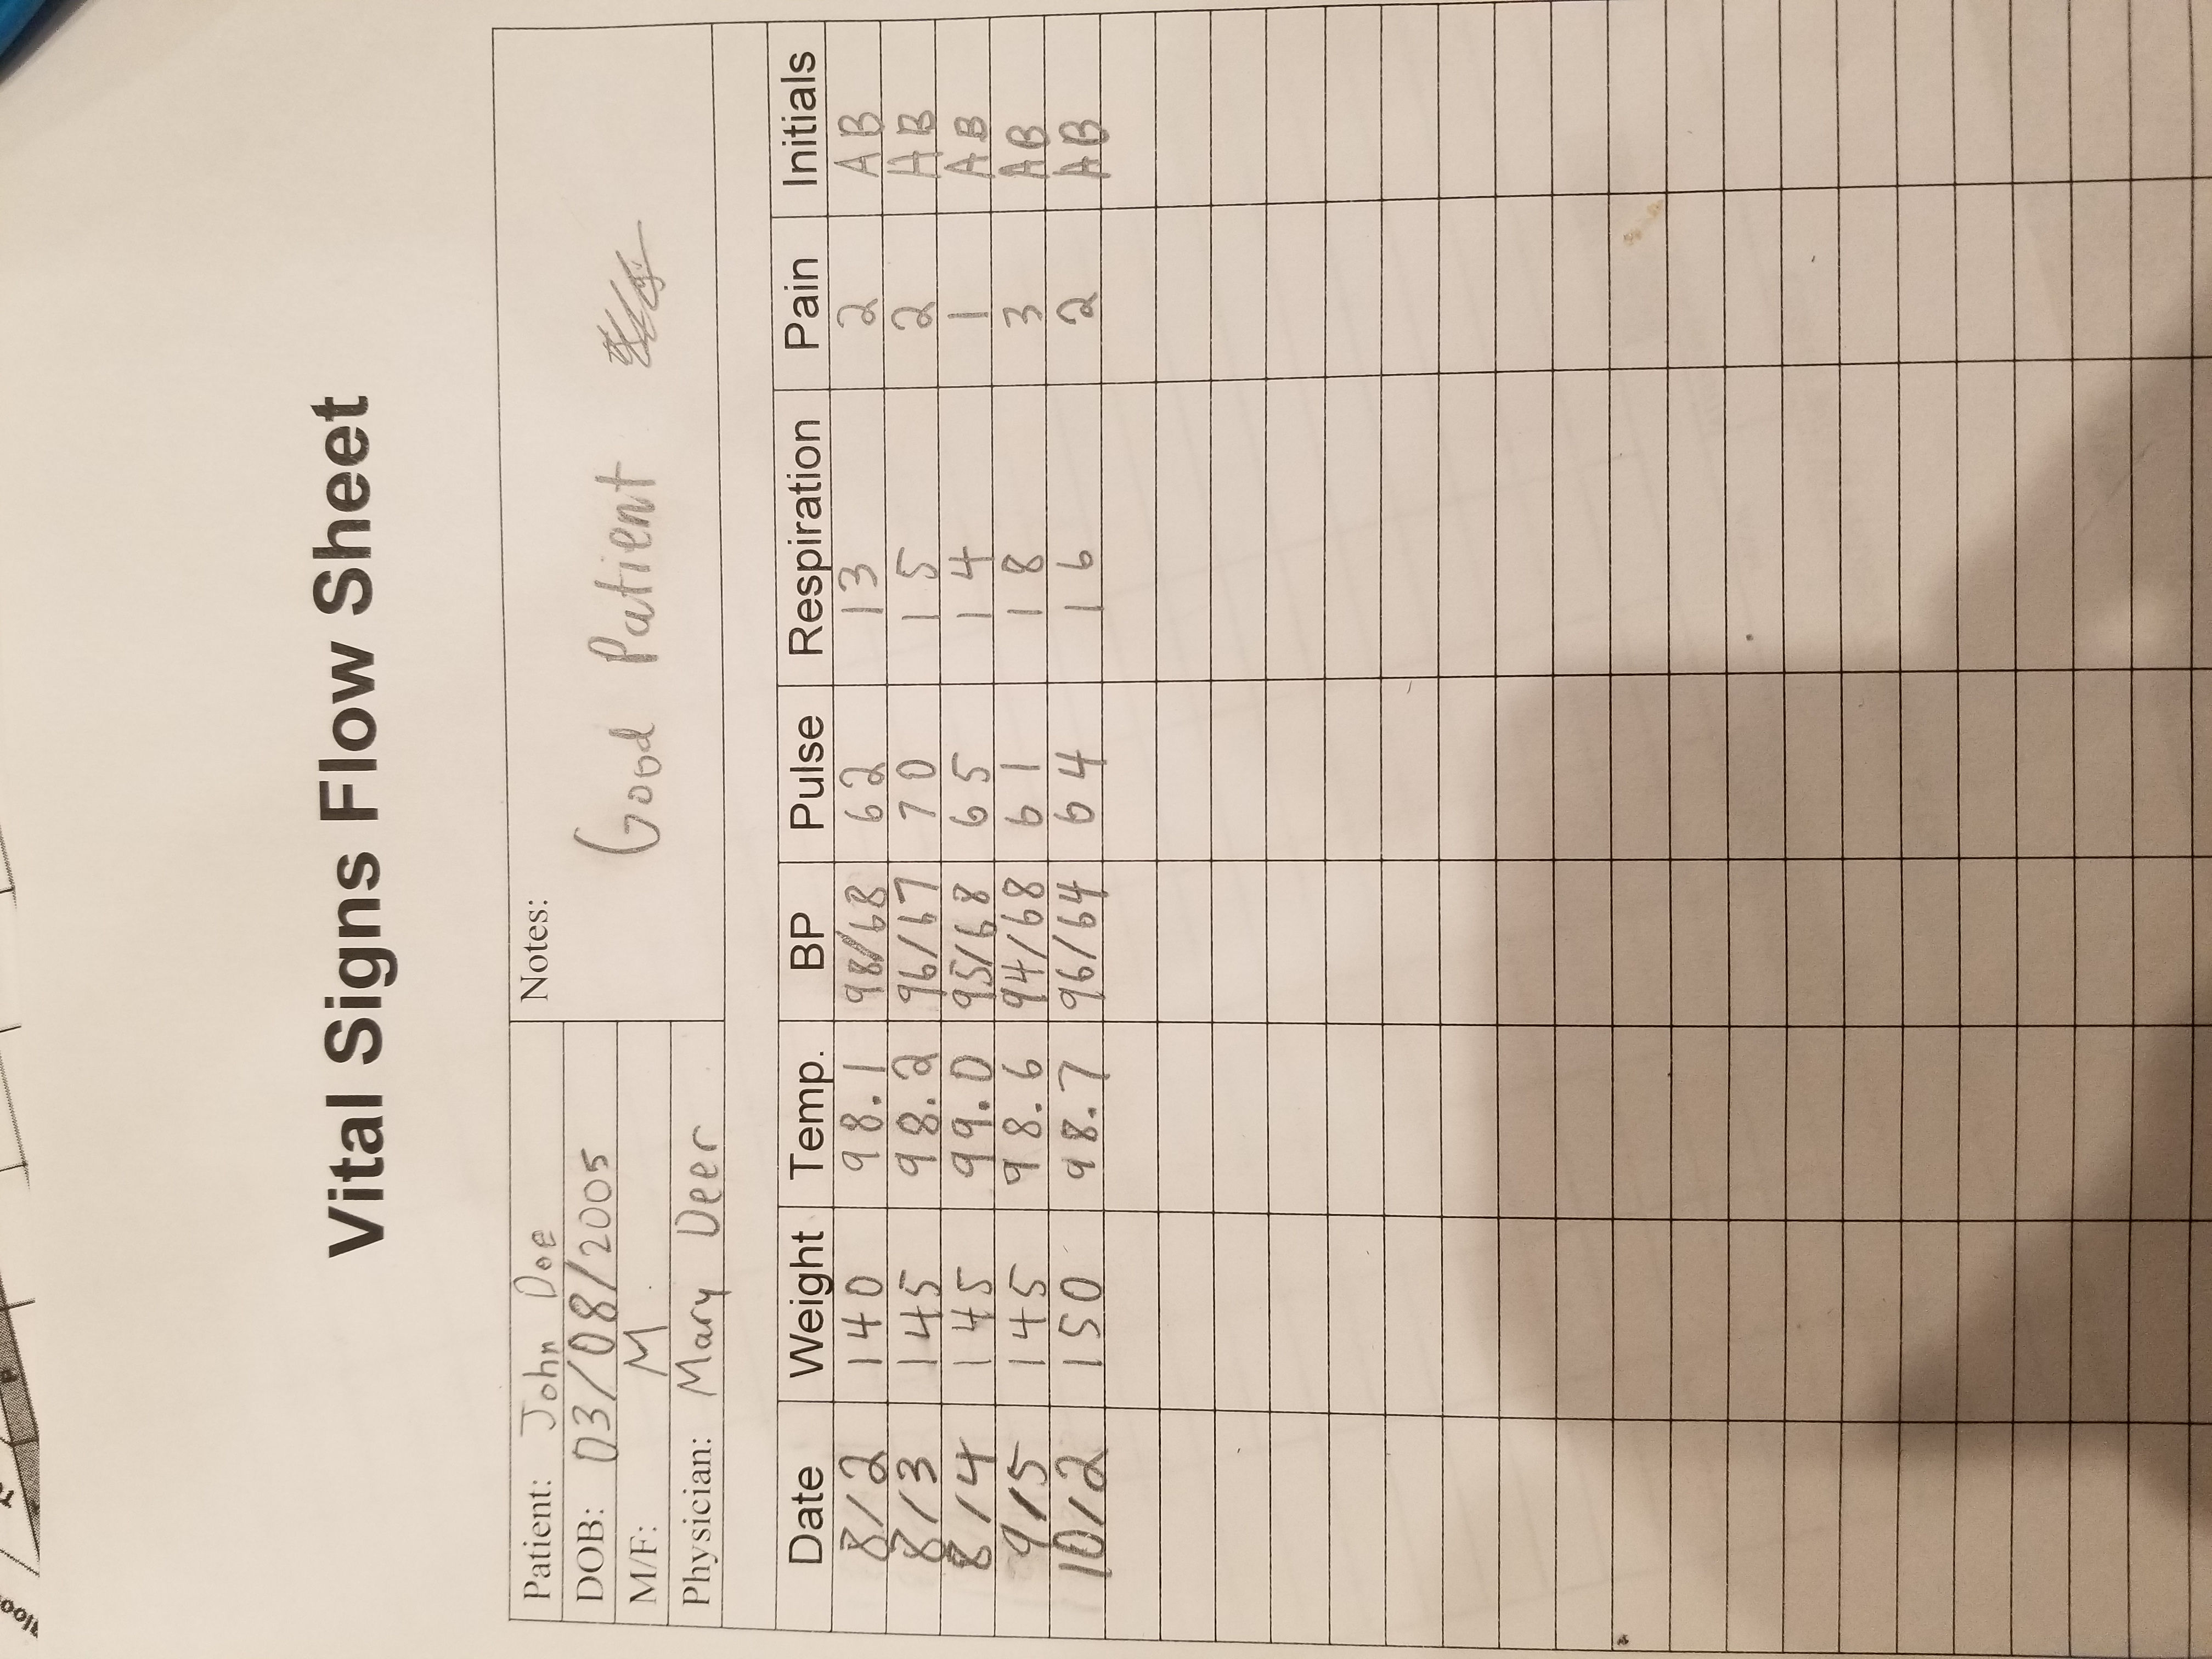 Vital Signs Flow Sheet
Patient: John Doe
Notes:
DOB: 03/08/2005
Good Patient
M/F: M
Physician: Mary Deer
Date Weight Temp. BP Pulse Respiration Pain Initials
8/2 140 98.1 98/68 62 13 2 AB
8/3 145 98.2 96/67 70 15 2 AB
8/4 145 99.0 95/68 65 14 1 AB
9/5 145 98.6 94/68 61 18 3 AB
10/2 150 98.7 96/64 64 16 2 AB